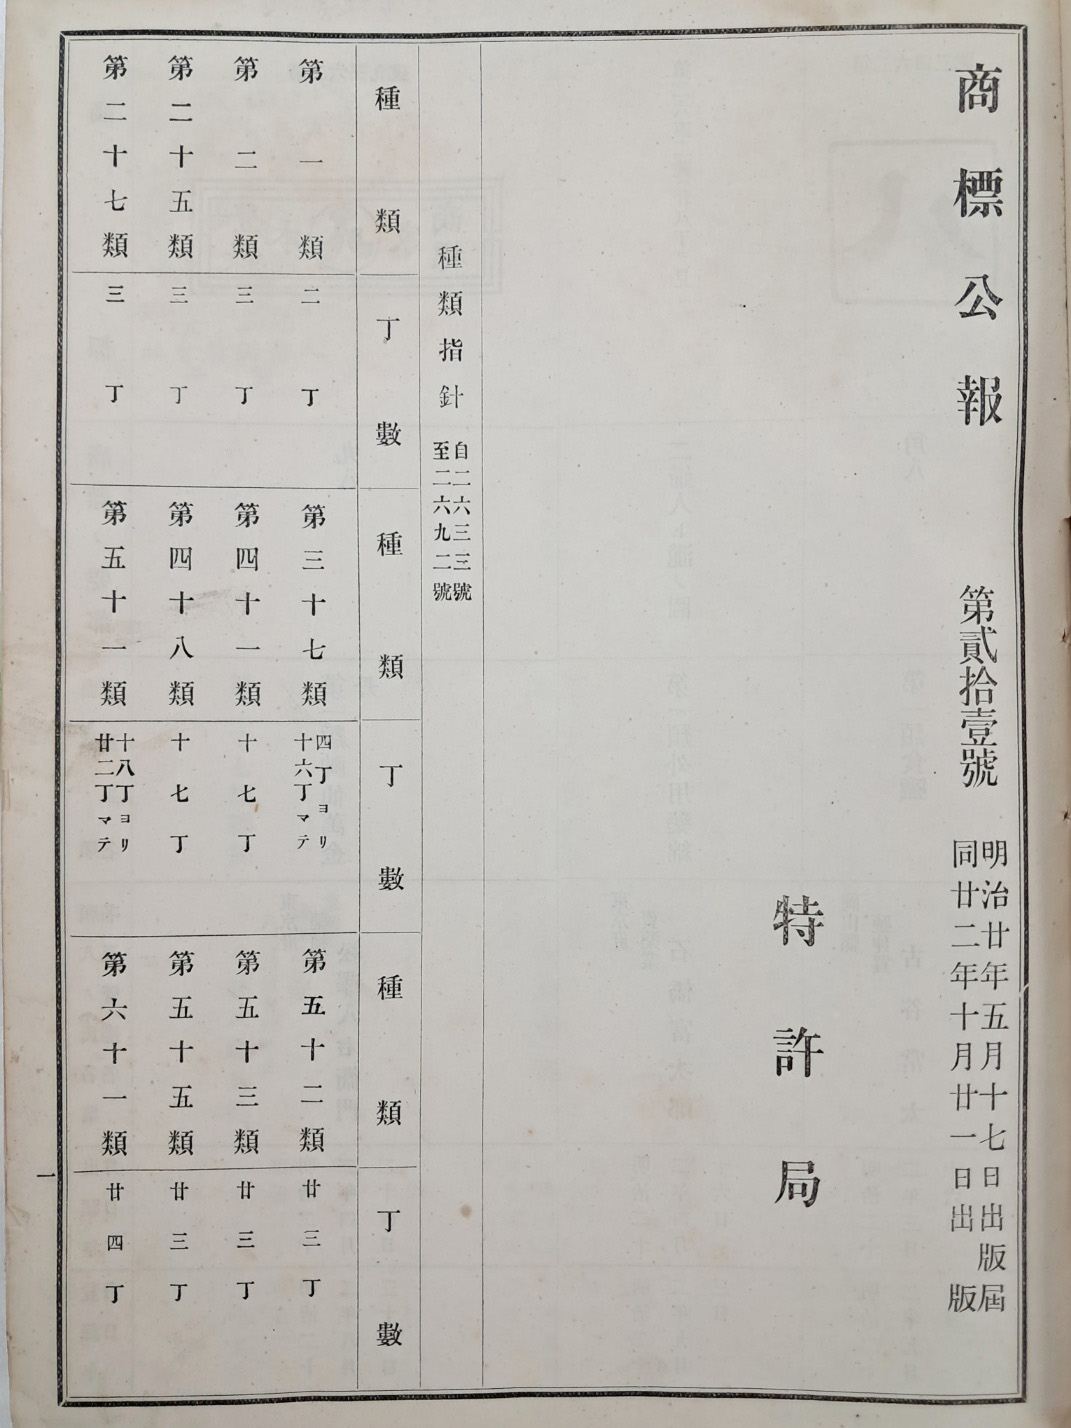 商標公報
第貳拾壹號
明治廿年五月十七日出版屆
同廿二年十月廿一日出版
特許局
種類指針
自二六三三號
至二六九二號
種類
丁數
種類
丁數
種類
丁數
第一類
二丁
第三十七類
四丁ヨリ
十六丁マテ
第五十二類
廿三丁
第二類
三丁
第四十一類
十七丁
第五十三類
廿三丁
第二十五類
三丁
第四十八類
十七丁
第五十五類
廿三丁
第二十七類
三丁
第五十一類
十八丁ヨリ
廿二丁マテ
第六十一類
廿四丁
一